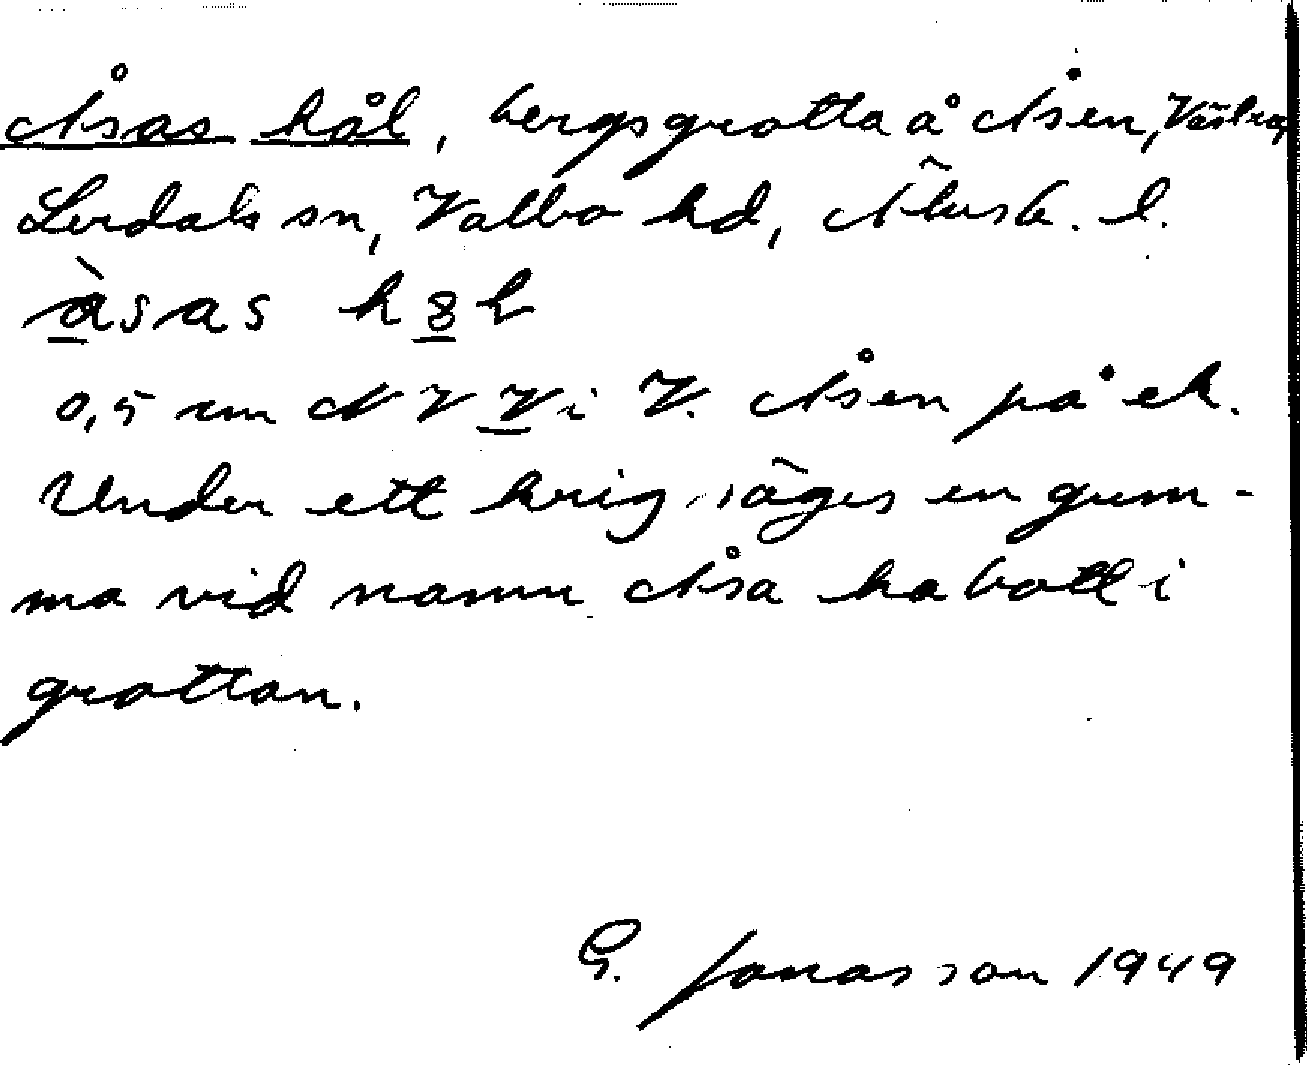 Åsas hål, bergsgrotta å Åsen, Västra,
Lerdals sn, Valbo hd, Älvsb. l.
àsas h8l
0,5 cm N V V i V. Åsen på ek.
Under ett krig säges en gum-
ma vid namn Åsa ha bott i
grottan.
G. Jonasson 1949